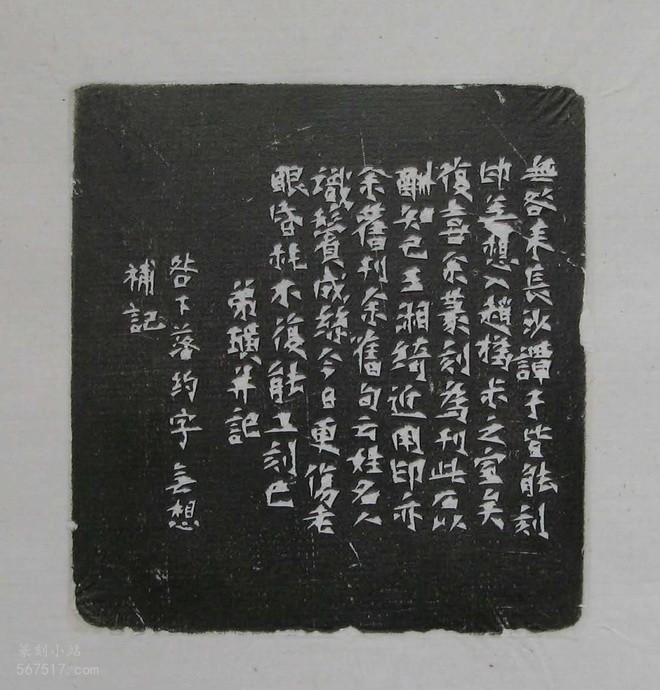 無咎來長沙譚子皆能刻
印想入趙撝叔之室矣
復喜余篆刻為刊此石以
酬知己王湘綺近用印亦
余舊刊余舊句云姓名人
識鬢成絲今日更傷老
眼昏耗不復能工刻已
弟璜并記
咎下落約字無想
補記
篆刻小站
567517.com